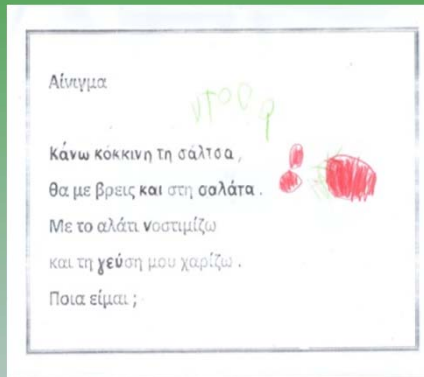 Αίνιγμα
ντοΟα
Κάνω κόκκινη τη σάλτσα ,
θα με βρεις και στη σαλάτα .
Με το αλάτι νοστιμίζω
και τη γεύση μου χαρίζω .
Ποια είμαι ;